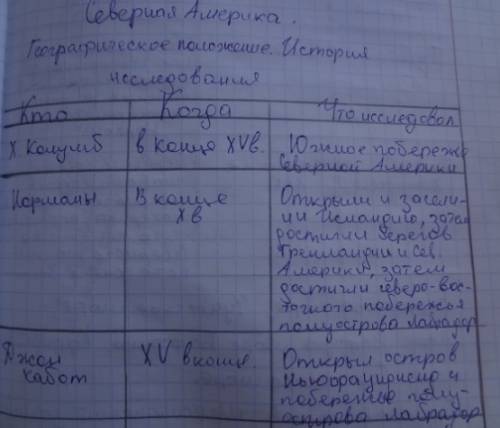 Северная Америка.
Географическое положение. История
исследования
Кто Когда Что исследовал
Х Колумб в конце XVв. Южное побереж
Северной Америки
Норманы В конце Открыли и засели-
Xв ли Исландию, затем
достигли берегов
Гренландии и Сев.
Америки, затем
достигли северо-вос-
точного побережья
полуострова Лабрадор
Джон XV в конце. Открыл остров
Кабот Ньюфаундленд и
побережье полу-
острова Лабрадор